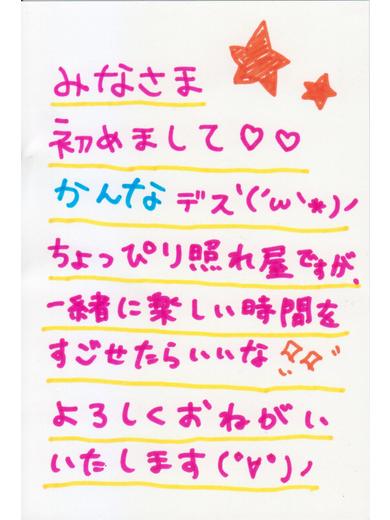 みなさま
初めまして♡♡
かんなデス'('ω'*)ノ
ちょっぴり照れ屋ですが、
一緒に楽しい時間を
すごせたらいいな
よろしくおねがい
いたします(°∀°)ノ